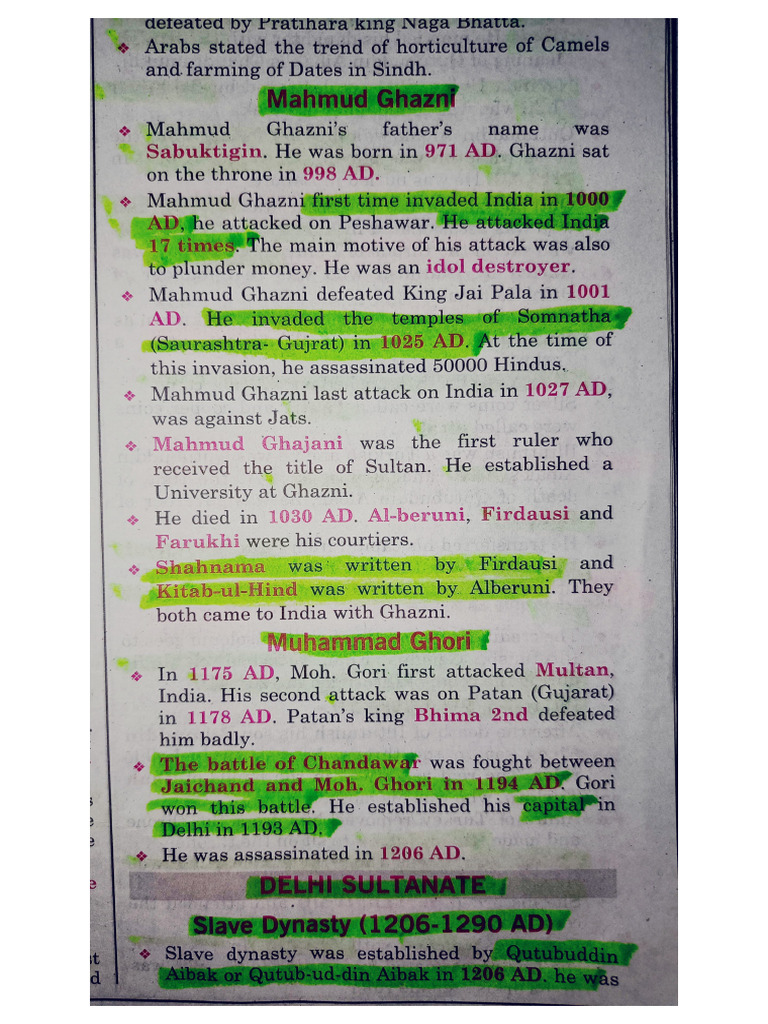 defeated by Pratihara king Naga Bhatta.
❖ Arabs stated the trend of horticulture of Camels
and farming of Dates in Sindh.
Mahmud Ghazni
❖ Mahmud Ghazni's father's name was
Sabuktigin. He was born in 971 AD. Ghazni sat
on the throne in 998 AD.
❖ Mahmud Ghazni first time invaded India in 1000
AD, he attacked on Peshawar. He attacked India
17 times. The main motive of his attack was also
to plunder money. He was an idol destroyer.
❖ Mahmud Ghazni defeated King Jai Pala in 1001
AD. He invaded the temples of Somnatha
(Saurashtra- Gujrat) in 1025 AD. At the time of
this invasion, he assassinated 50000 Hindus.
❖ Mahmud Ghazni last attack on India in 1027 AD,
was against Jats.
❖ Mahmud Ghajani was the first ruler who
received the title of Sultan. He established a
University at Ghazni.
❖ He died in 1030 AD. Al-beruni, Firdausi and
Farukhi were his courtiers.
❖ Shahnama was written by Firdausi and
Kitab-ul-Hind was written by Alberuni. They
both came to India with Ghazni.
Muhammad Ghori
❖ In 1175 AD, Moh. Gori first attacked Multan,
India. His second attack was on Patan (Gujarat)
in 1178 AD. Patan's king Bhima 2nd defeated
him badly.
❖ The battle of Chandawar was fought between
Jaichand and Moh. Ghori in 1194 AD. Gori
won this battle. He established his capital in
Delhi in 1193 AD.
❖ He was assassinated in 1206 AD.
DELHI SULTANATE
Slave Dynasty (1206-1290 AD)
❖ Slave dynasty was established by Qutubuddin
Aibak or Qutub-ud-din Aibak in 1206 AD. he was